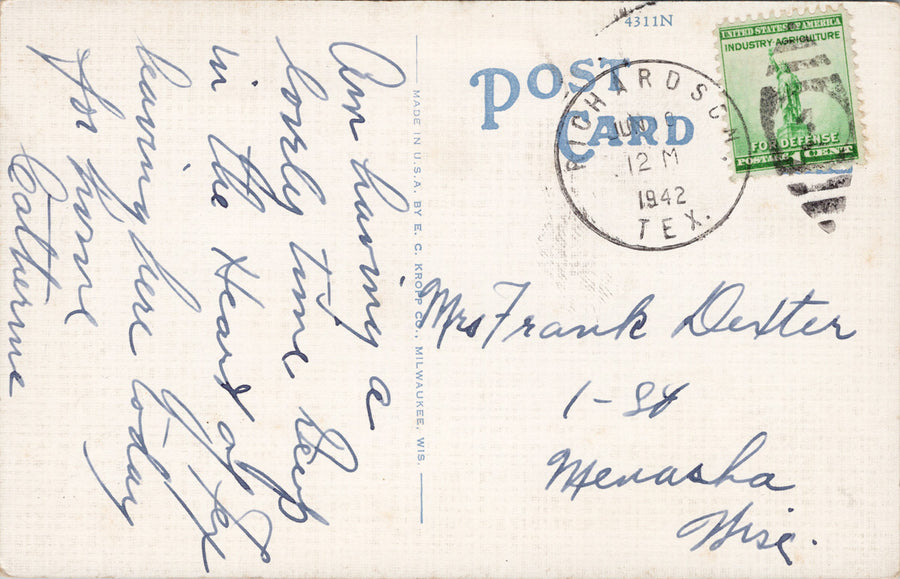 4311N
POST
CARD
RICHARDSON,
JUN 9
12 M
1942
TEX.
UNITED STATES OF AMERICA
INDUSTRY·AGRICULTURE
FOR DEFENSE
POSTAGE 1 CENT
MADE IN U.S.A. BY E. C. KROPP CO., MILWAUKEE, WIS.
Am having a
lovely time
in the Heart of Tex
leaving here today
for home
Catherine
Mrs Frank Dexter
1-St
Menasha
Wisc.